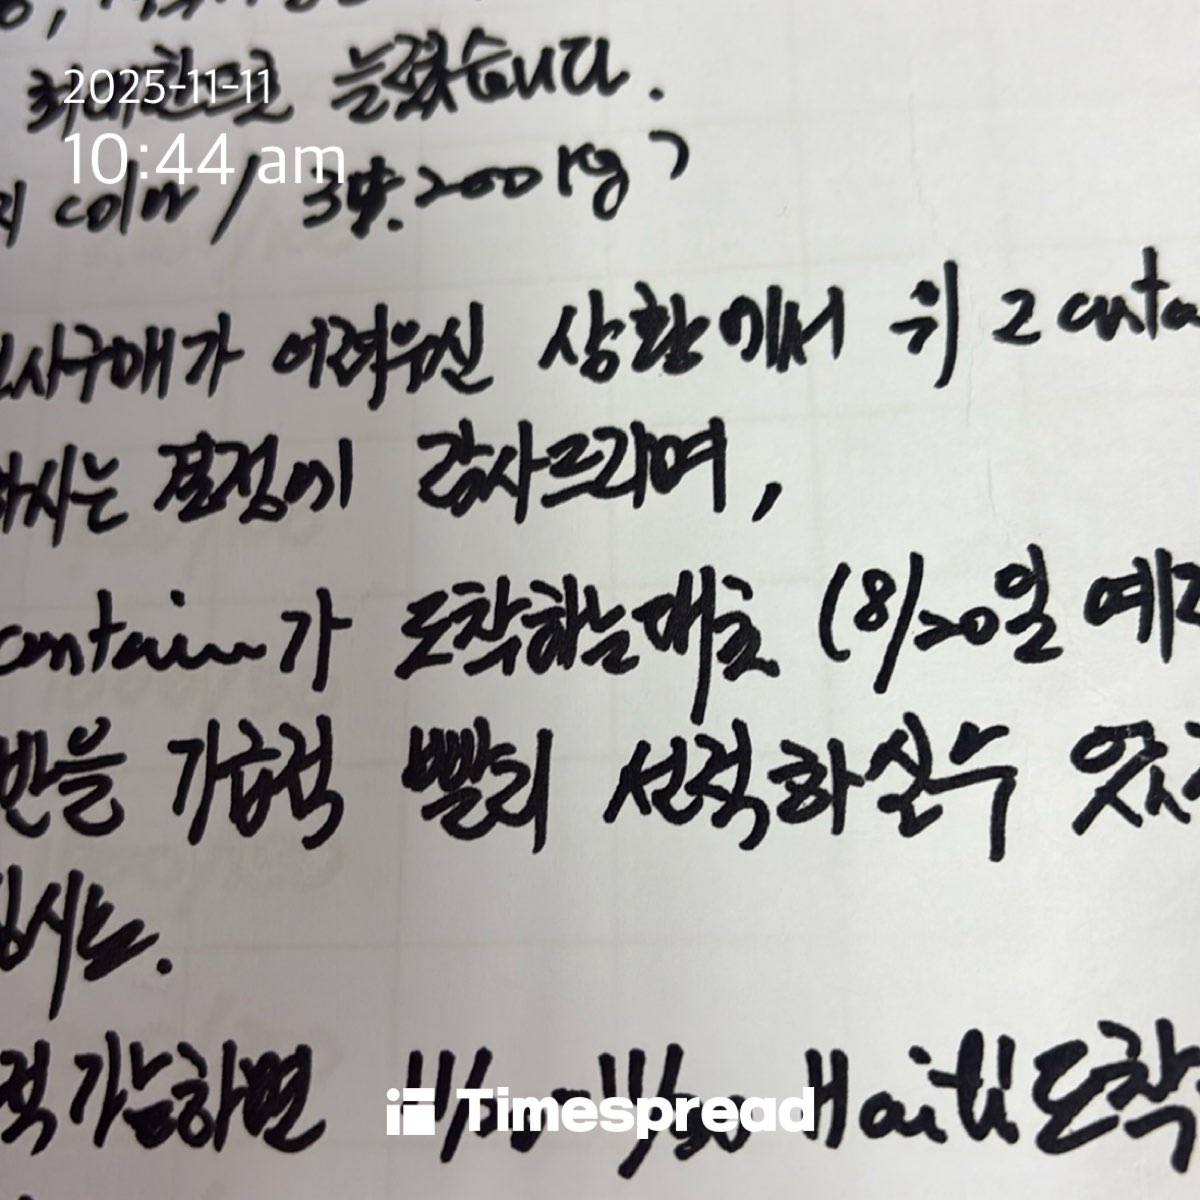 최대한으로 늘렸습니다.
2025-11-11
10:44 am
color / 3만.200kg
사구매가 어려우신 상황에서 위 2 conta
하시는 결정에 감사드리며,
container가 도착하는대로 (8/20일 예정
반을 가급적 빨리 선적하실수 있
십시요.
적가능하면 11/20-11/30 Haiti도착
Timespread